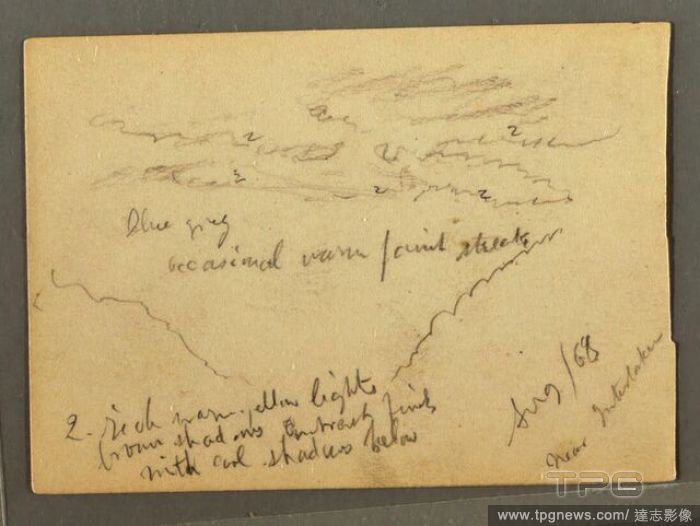 2
2
2
2
2
2
Blue grey
occasional warm faint streaks
2. rich warm yellow lights
brown shadows contrast finely
with cool shadows below
Aug/68
near Interlaken
TPG
www.tpgnews.com/ 達志影像